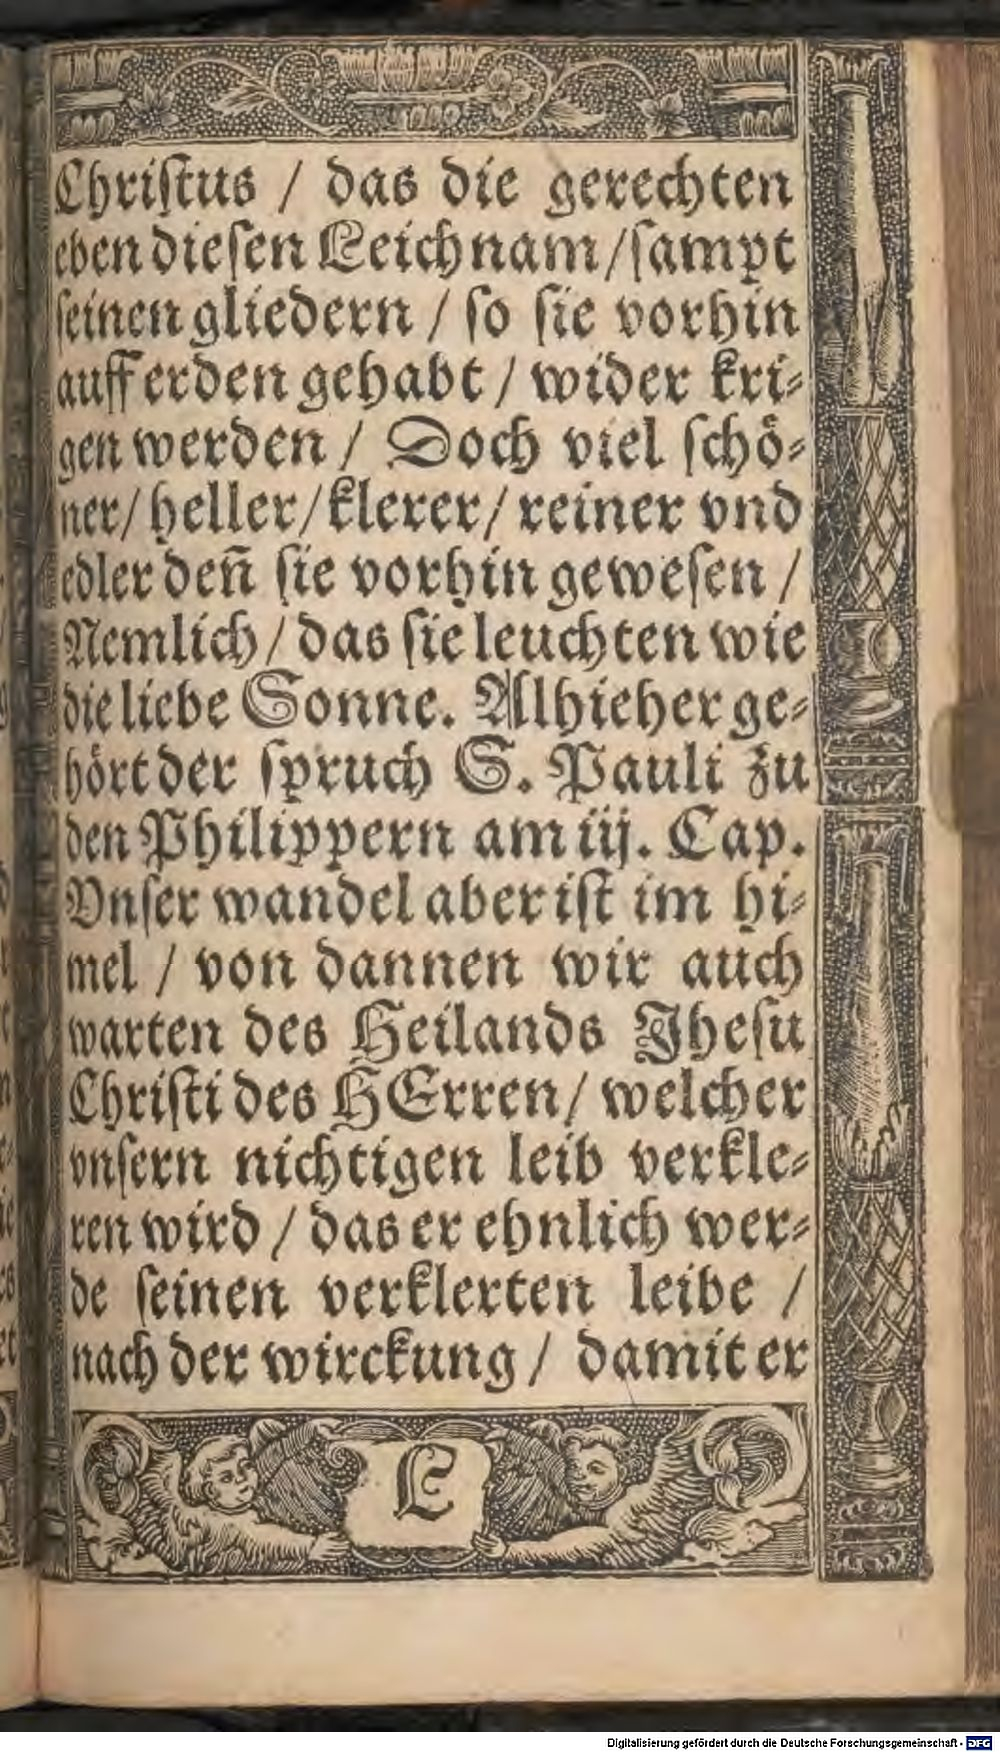 Christus / das die gerechten
eben diesen Leichnam / sampt
seinen gliedern / so sie vorhin
auff erden gehabt / wider kri⸗
gen werden / Doch viel schö⸗
ner / heller / klerer / reiner vnd
edler deñ sie vorhin gewesen /
Nemlich / das sie leuchten wie
die liebe Sonne. Alhieher ge⸗
hört der spruch S. Pauli zu
den Philippern am iij. Cap.
Vnser wandel aber ist im hi⸗
mel / von dannen wir auch
warten des Heilands Jhesu
Christi des HErren / welcher
vnsern nichtigen leib verkle⸗
ren wird / das er ehnlich wer⸗
de seinen verklerten leibe /
nach der wirckung / damit er
L
Digitalisierung gefördert durch die Deutsche Forschungsgemeinschaft - DFG